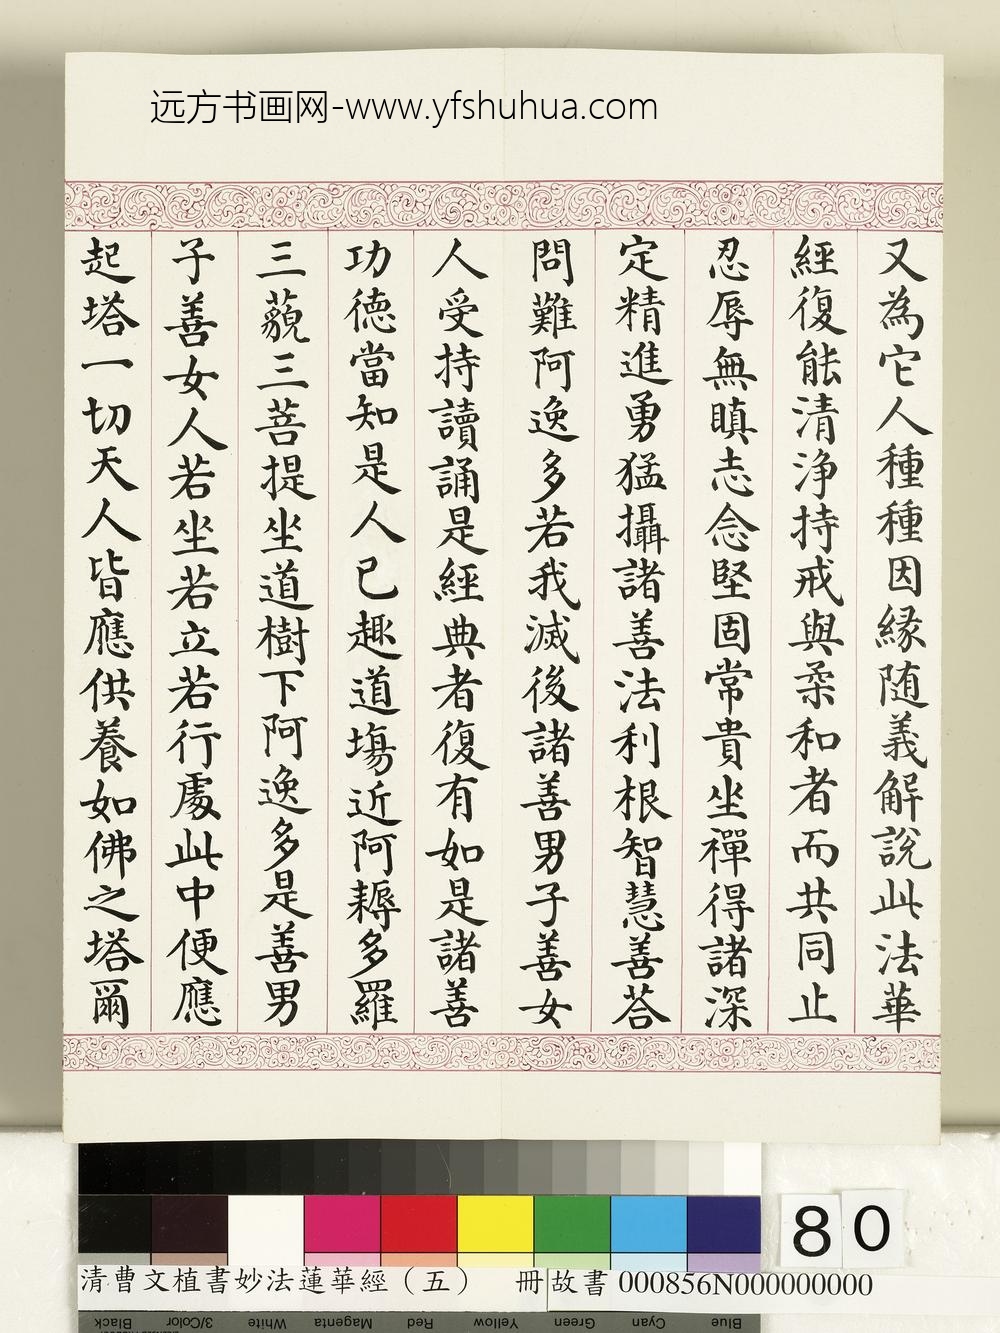 远方书画网-www.yfshuhua.com
又為它人種種因緣随義解說此法華
經復能清淨持戒與柔和者而共同止
忍辱無瞋志念堅固常貴坐禪得諸深
定精進勇猛攝諸善法利根智慧善荅
問難阿逸多若我滅後諸善男子善女
人受持讀誦是經典者復有如是諸善
功德當知是人已趣道塲近阿耨多羅
三藐三菩提坐道樹下阿逸多是善男
子善女人若坐若立若行處此中便應
起塔一切天人皆應供養如佛之塔爾
80
清曹文植書妙法蓮華經（五） 冊 故書 000856N000000000
Black 3/Color White Magenta Red Yellow Green Cyan Blue